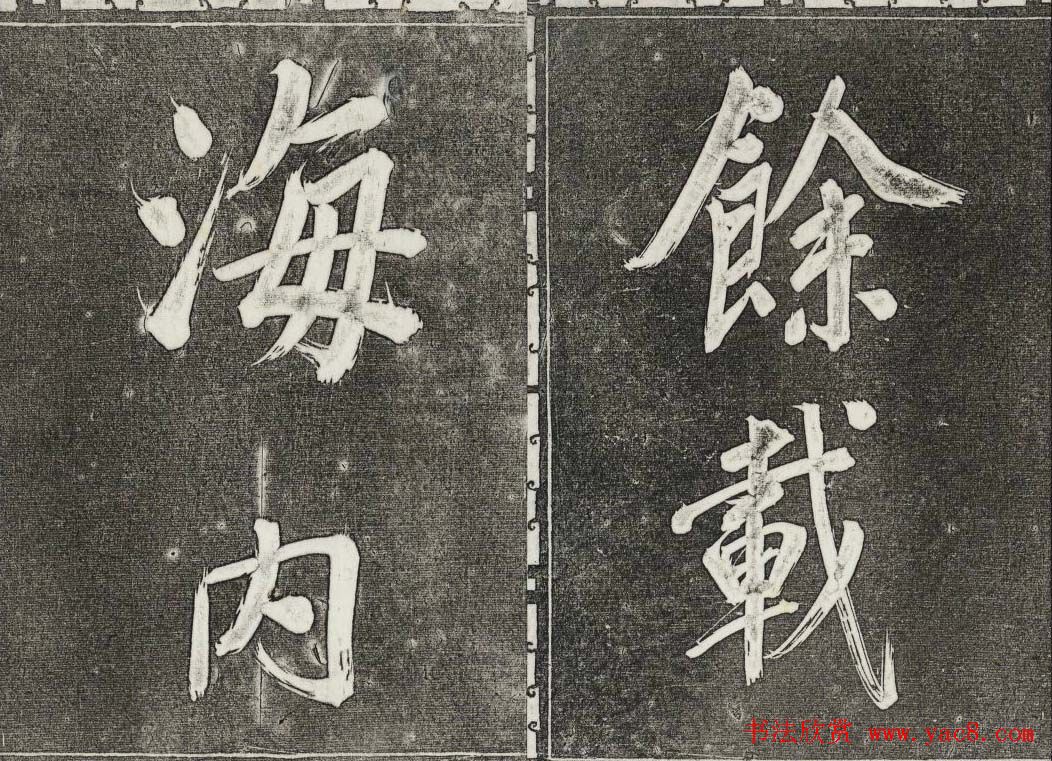 餘載
海内
书法欣赏 www.yac8.com